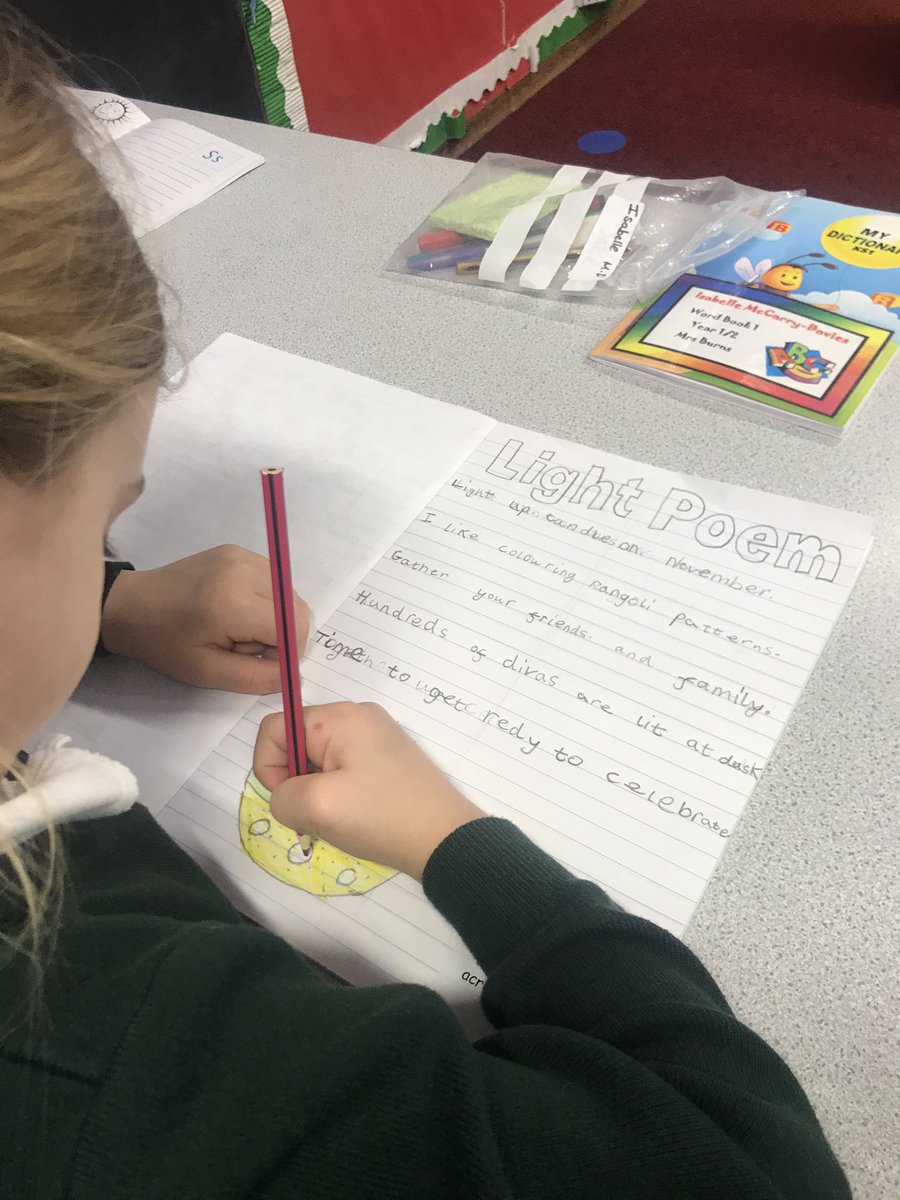 Ss
Isabelle M.
MY
DICTIONAR
KS1
Isabelle McCarry-Davies
Word Book 1
Year 1/2
Mrs Burns
ABC
Light Poem
Light up candles on November.
I like colouring Rangoli patterns.
Gather your friends. and family.
Hundreds of divas are lit at dusk
Time to get redy to celebrate
acr